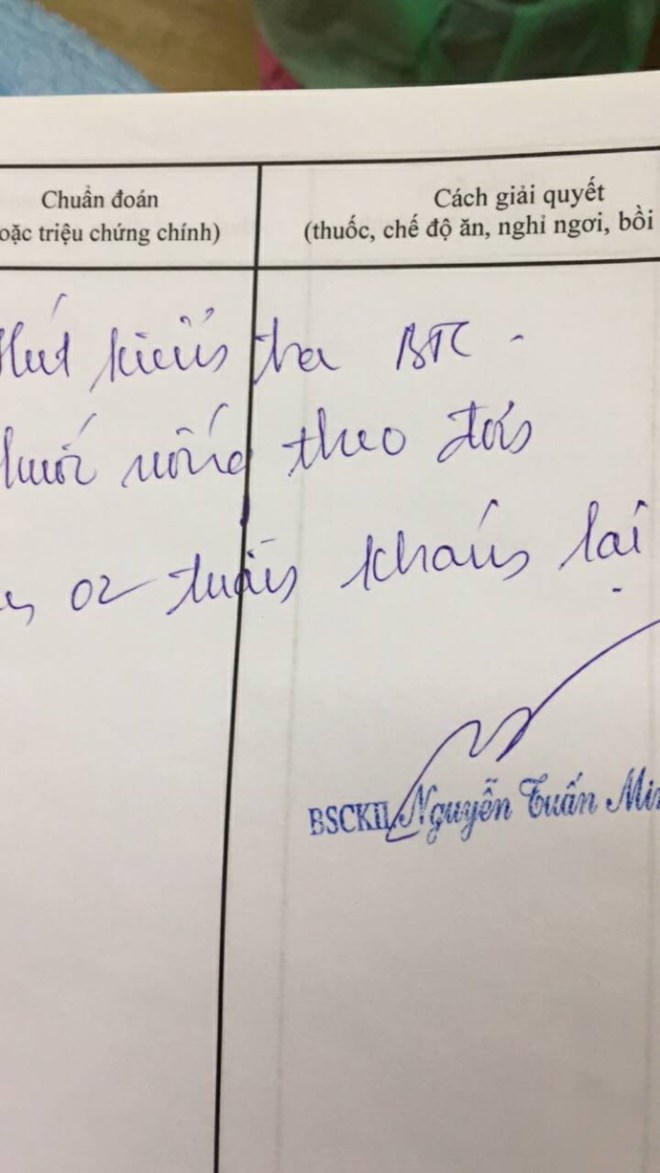 Chuẩn đoán
oặc triệu chứng chính)
Cách giải quyết
(thuốc, chế độ ăn, nghỉ ngơi, bồi
Hút kiểm tra BTC -
thuốc uống theo dõi
02 tuần khám lại
BSCKII Nguyễn Tuấn Min